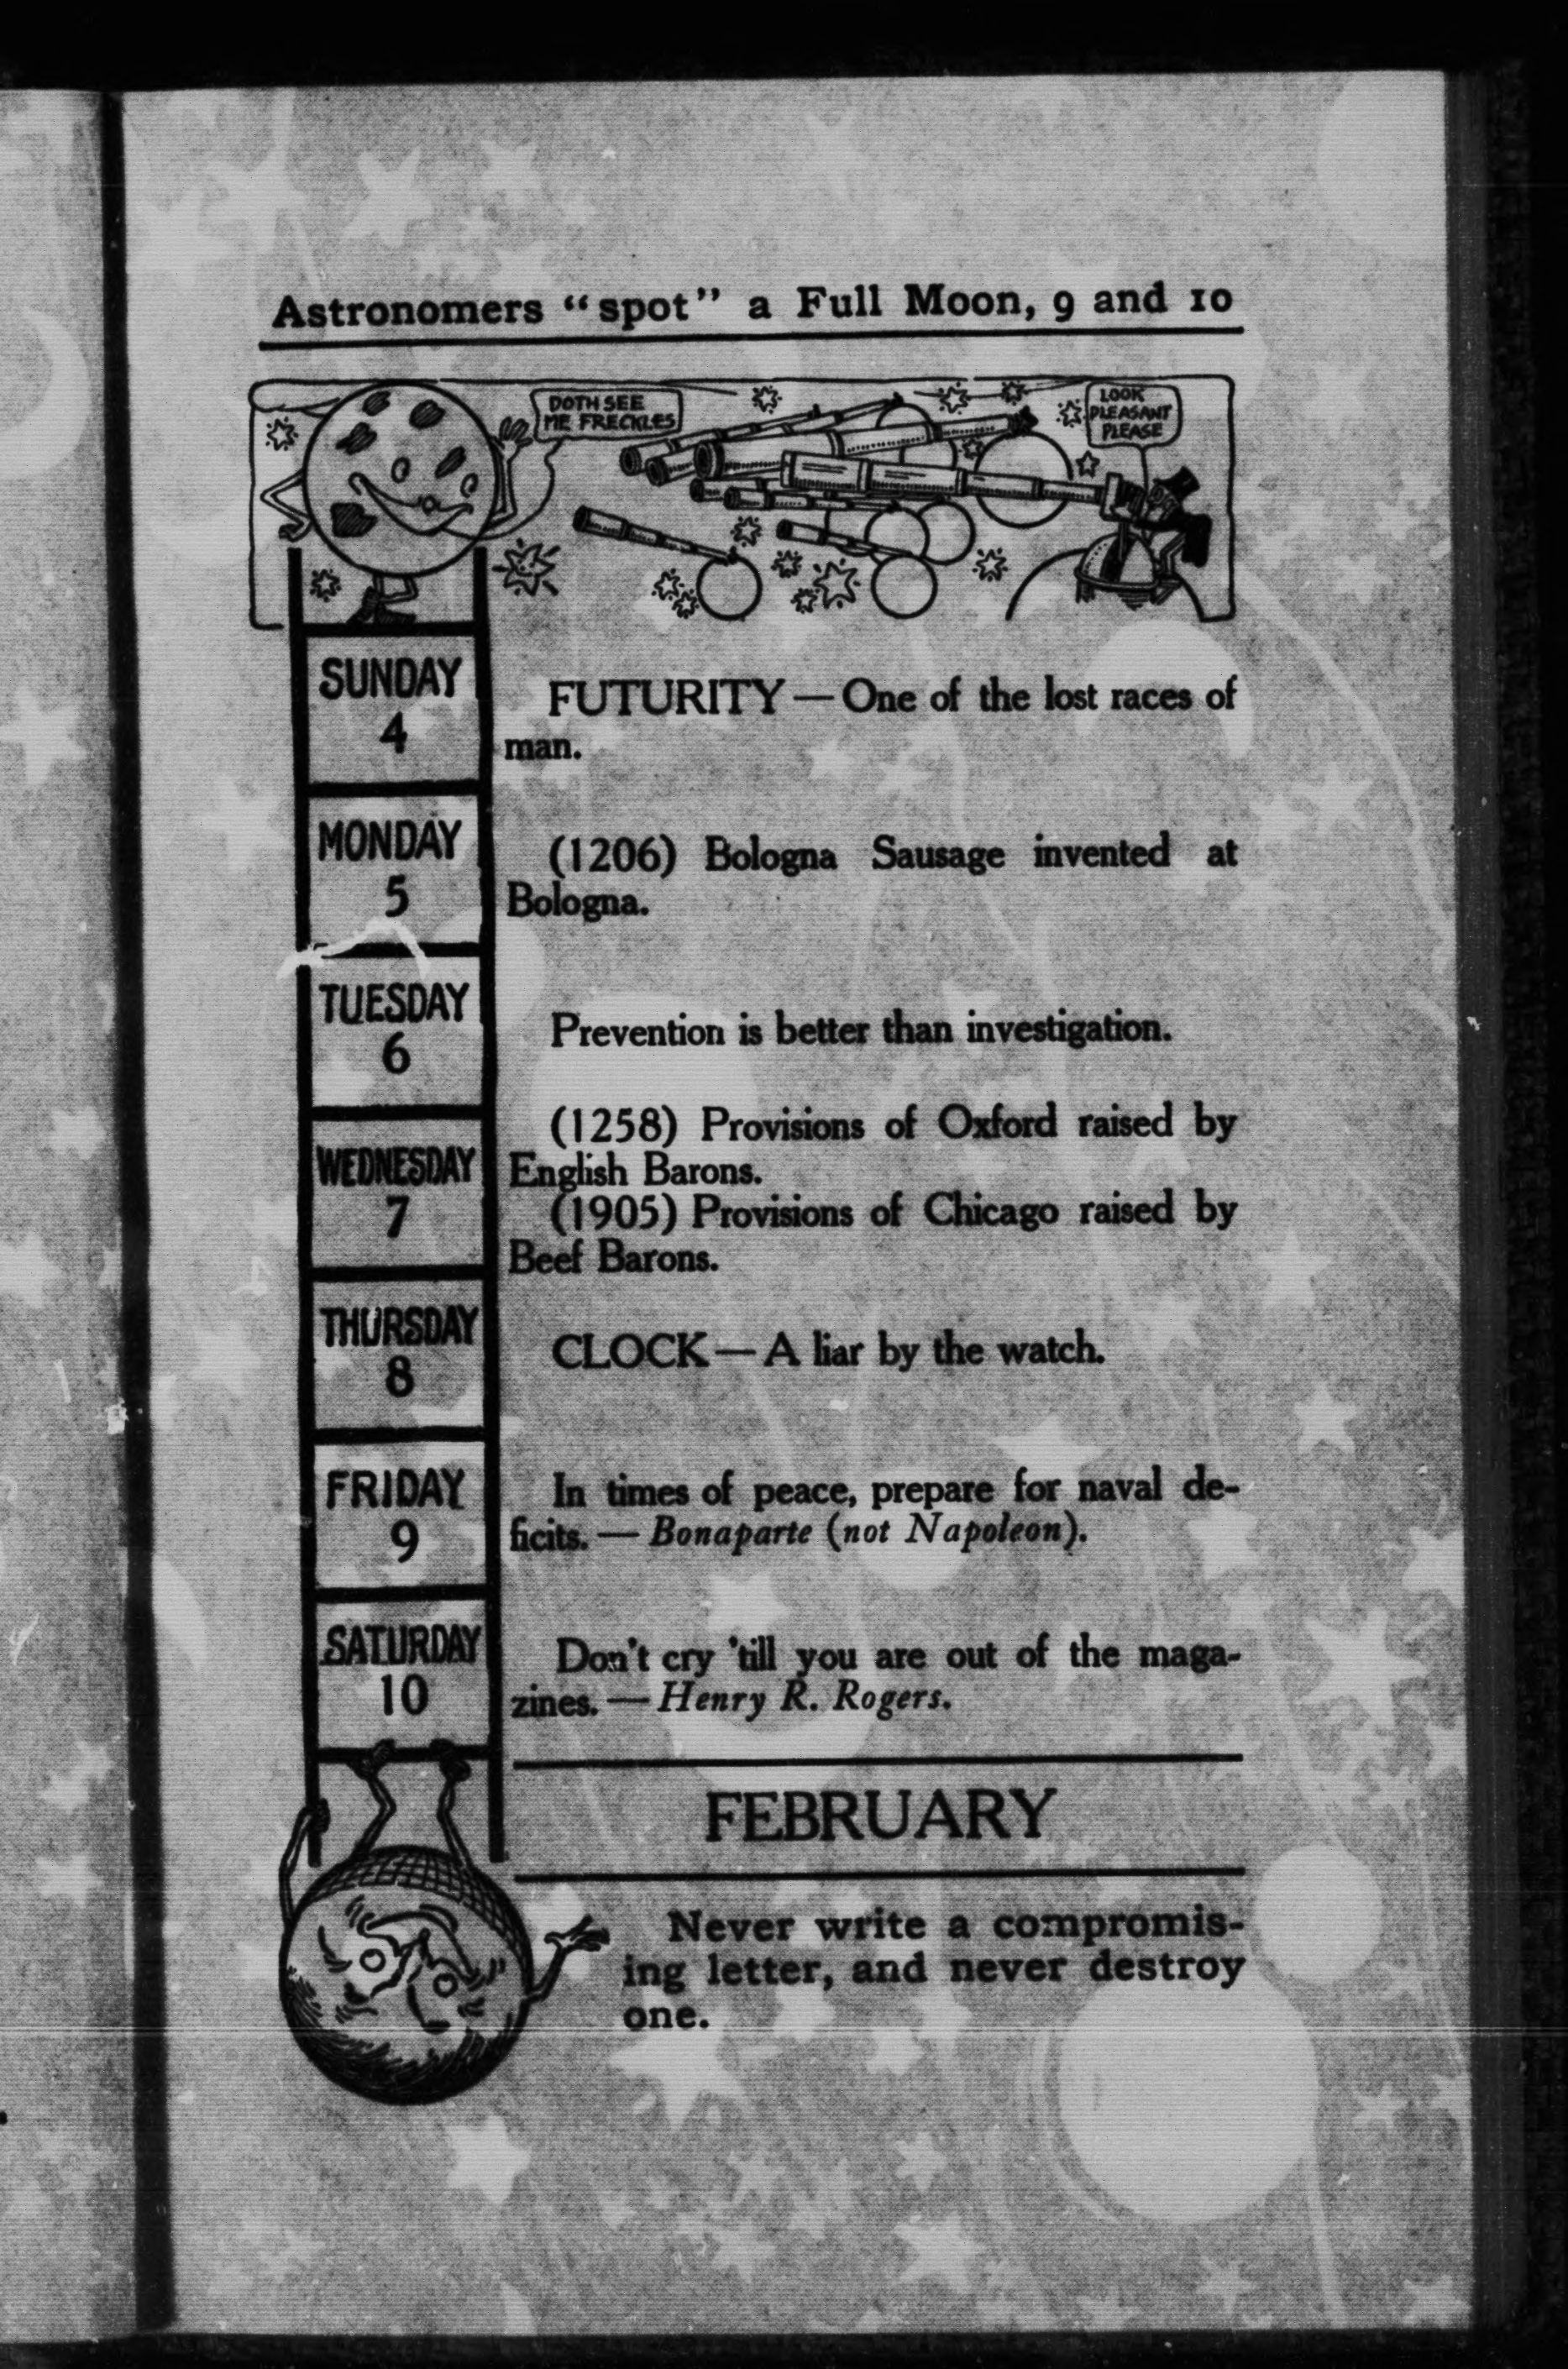 Astronomers "spot" a Full Moon, 9 and 10
DOTH SEE
ME FRECKLES
LOOK
PLEASANT
PLEASE
SUNDAY
4
FUTURITY — One of the lost races of
man.
MONDAY
5
(1206) Bologna Sausage invented at
Bologna.
TUESDAY
6
Prevention is better than investigation.
WEDNESDAY
7
(1258) Provisions of Oxford raised by
English Barons.
(1905) Provisions of Chicago raised by
Beef Barons.
THURSDAY
8
CLOCK — A liar by the watch.
FRIDAY
9
In times of peace, prepare for naval de-
ficits. — Bonaparte (not Napoleon).
SATURDAY
10
Don't cry 'till you are out of the maga-
zines. — Henry R. Rogers.
FEBRUARY
Never write a compromis-
ing letter, and never destroy
one.